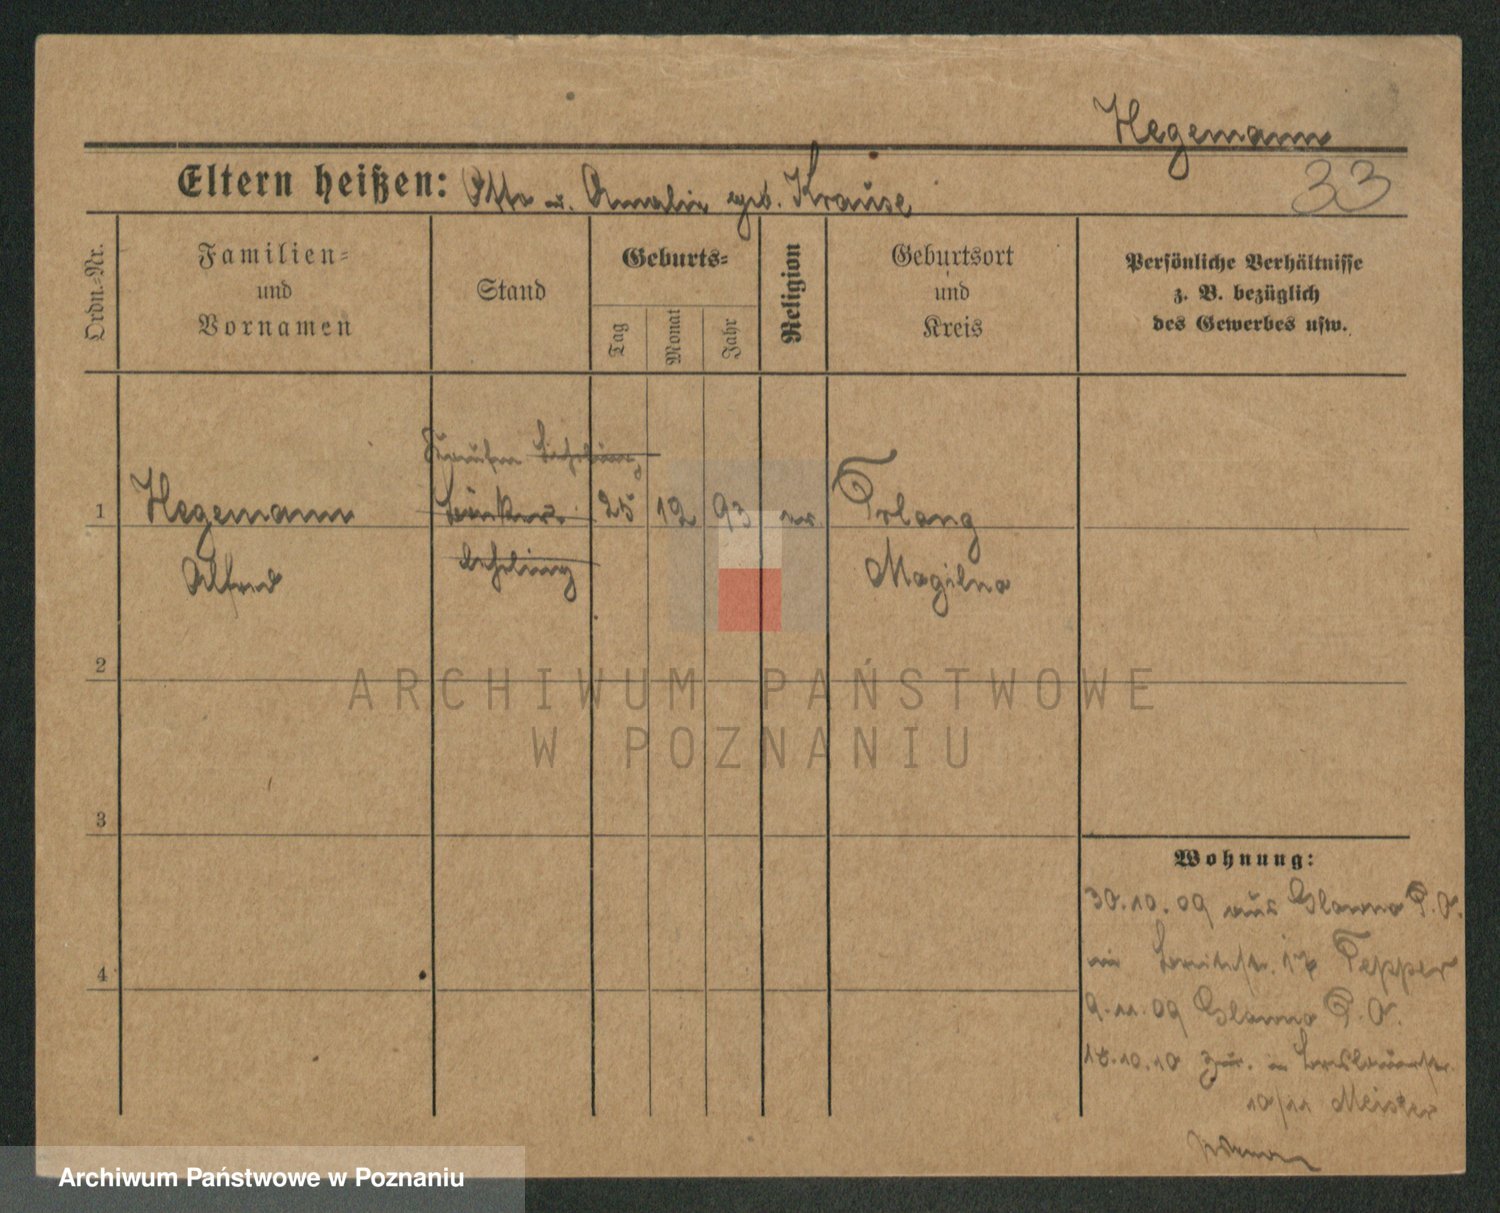 Hegemann
33
Eltern heißen: Otto u. Amalie geb. Krause
Ordn.-Nr.
Familien-
und
Vornamen
Stand
Geburts-
Tag
Monat
Jahr
Religion
Geburtsort
und
Kreis
Persönliche Verhältnisse
z. B. bezüglich
des Gewerbes usw.
Lehrling
1 Hegemann Bäcker 25 12 93 ev. Orlang
Alfred lehrling Mogilno
2
ARCHIWUM PAŃSTWOWE
W POZNANIU
3
4
Wohnung:
30.10.09 aus P.O.
in 17 Tepper
9.11.09 P.O.
18.10.10 zur. in Breslauerstr.
10/11 Meister
Archiwum Państwowe w Poznaniu